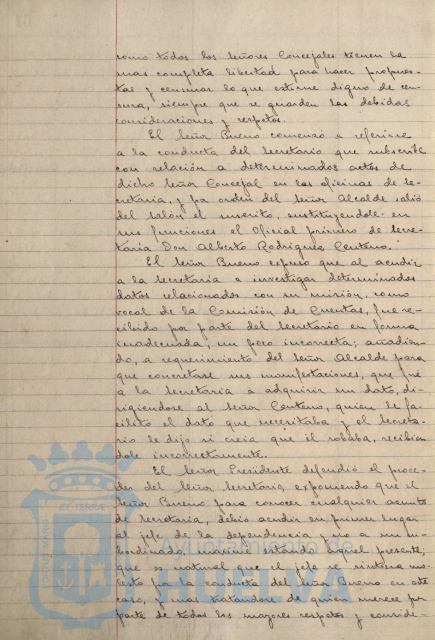 como todos los Señores Concejales tienen la
mas completa libertad para hacer propues-
tas y censurar lo que estime digno de cen-
sura, siempre que se guarden las debidas
consideraciones y respetos.
El Señor Bueno comenzó a referirse
a la conducta del Secretario que subscribe
con relación a determinados actos de
dicho Señor Concejal en las oficinas de Se-
cretaría, y por orden del Señor Alcalde salió
del salón el suscrito, sustituyendole en
sus funciones el Oficial primero de Secre-
taria Don Alberto Rodriguez Centeno.
El Señor Bueno expuso que al acudir
a la Secretaria a investigar determinados
datos relacionados con su misión, como
vocal de la Comisión de Cuentas, fue re-
cibido por parte del Secretario en forma
inadecuada, un poco incorrecta; añadien-
do, a requerimiento del Señor Alcalde para
que concretase sus manifestaciones, que fué
a la Secretaria a adquirir un dato, di-
rigiendose al Señor Centeno, quien le fa-
cilitó el dato que necesitaba y el Secreta-
rio le dijo si creia que él robaba, recibien-
dole incorrectamente.
El Señor Presidente defendió el proce-
der del Señor Secretario, exponiendo que el
Señor Bueno para conocer cualquier asunto
de Secretaria, debió acudir en primer lugar
al jefe de la dependencia y no a un su-
bordinado, maxime estando aquel presente,
que es natural que el jefe se sintiera mo-
lesto por la conducta del Señor Bueno en este
caso, y mas tratandose de quien merece por
parte de todos los mayores respetos y conside-